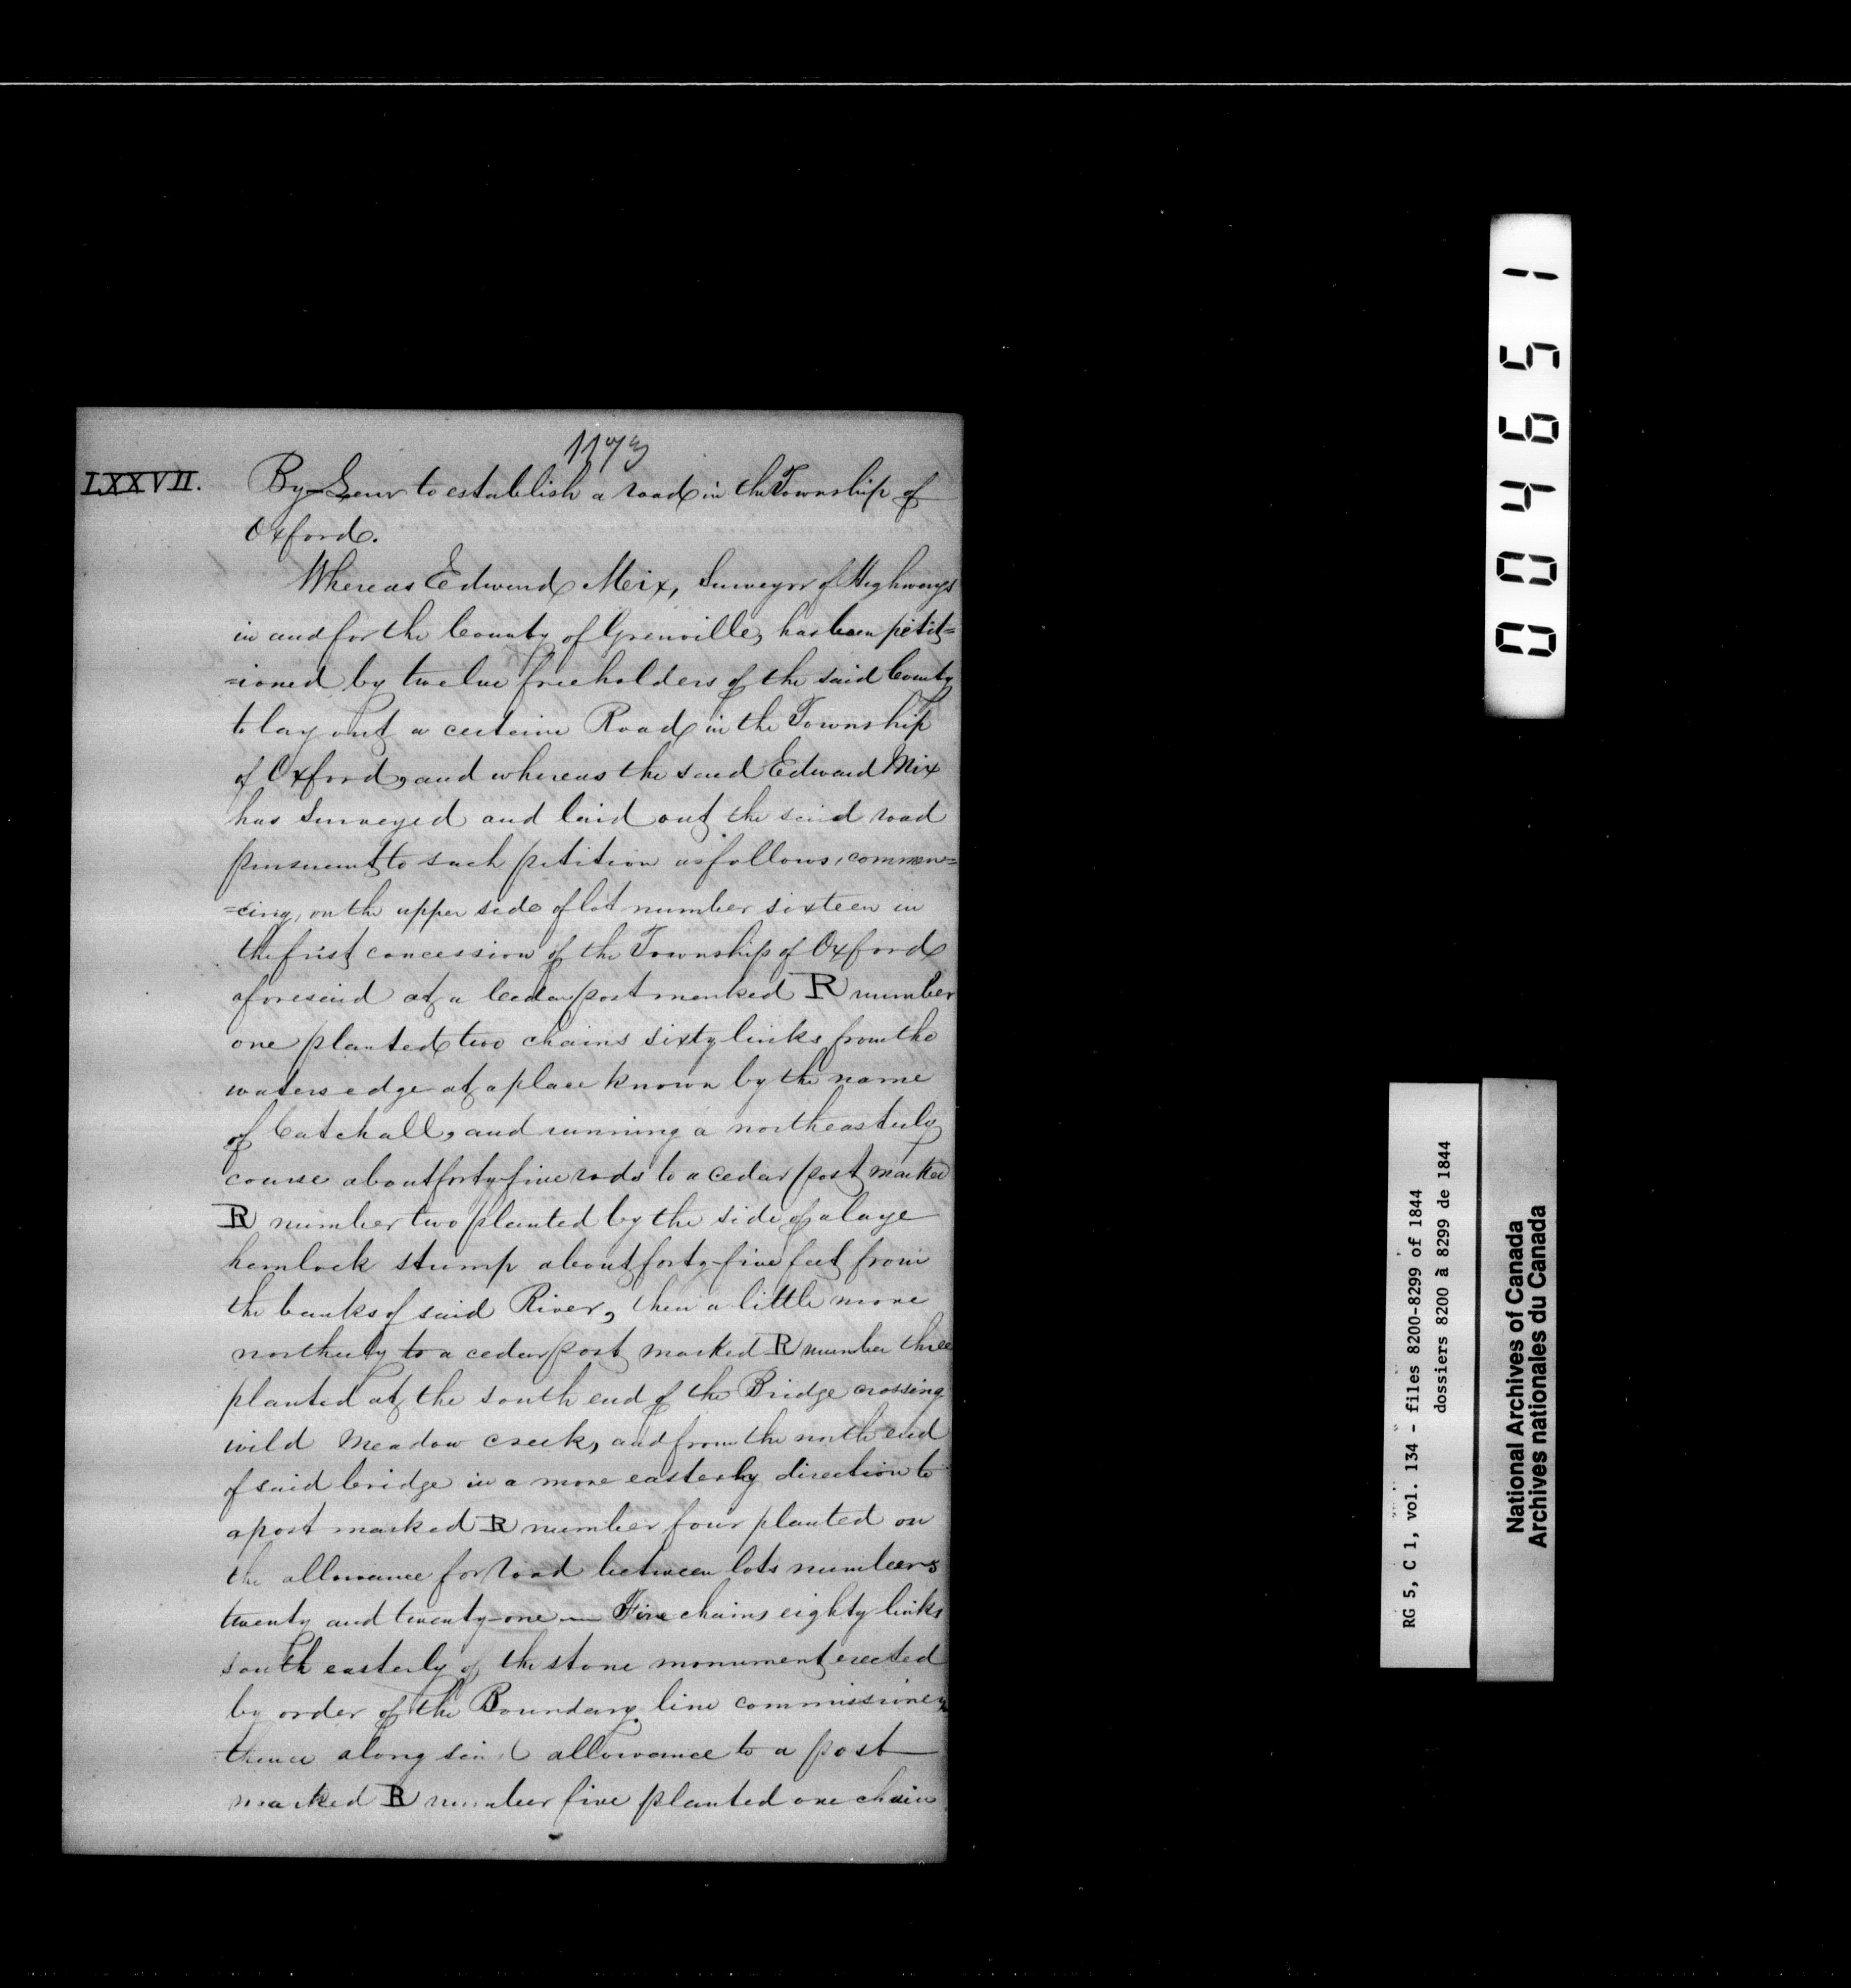 1173
LXXVII. By-Law to establish a road in the Township of
Oxford.
Whereas Edward Mix, Surveyor of Highways
in and for the County of Grenville, has been petit=
=ioned by twelve freeholders of the said County
to lay out a certain Road in the Township
of Oxford, and whereas the said Edward Mix
has Surveyed and laid out the said road
pursuant to such petition as follows, commen=
=cing, on the upper side of lot number sixteen in
the first concession of the Township of Oxford
aforesaid at a Cedar post marked R number
one planted two chains sixty links from the
waters edge at a place known by the name
of Catchall, and running a northeasterly
course about forty-five rods to a cedar post marked
R number two planted by the side of a large
hemlock stump about forty-five feet from
the banks of said River, then a little more
northerly to a cedar post marked R number three
planted at the south end of the Bridge crossing
wild Meadow creek, and from the north end
of said bridge in a more easterly direction to
a post marked R number four planted on
the allowance for road between lots numbers
twenty and twenty-one — Five chains eighty links
south easterly of the stone monument erected
by order of the Boundary line commissioners
thence along said allowance to a post
marked R number five planted one chain
004651
RG 5, C 1, vol. 134 - files 8200-8299 of 1844
dossiers 8200 à 8299 de 1844
National Archives of Canada
Archives nationales du Canada